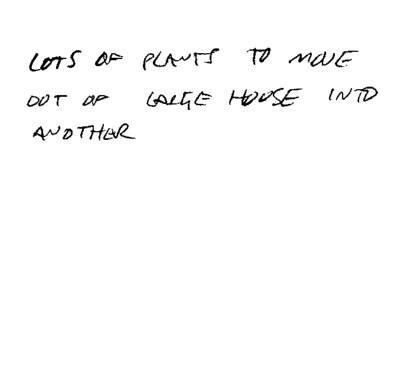 LOTS OF PLANTS TO MOVE
OUT OF LARGE HOUSE INTO
ANOTHER